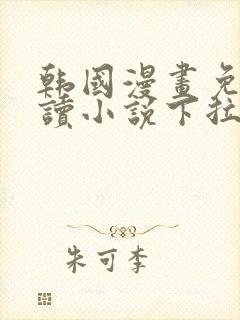 韩國漫畫免
讀小說下拉
朱可李